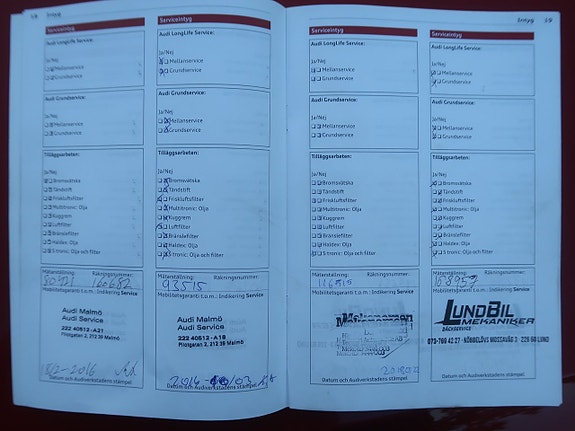 1/8 Intyg
Serviceintyg
Audi LongLife Service:
Ja/Nej
Mellanservice
Grundservice
Audi Grundservice:
Ja/Nej
Mellanservice
Grundservice
Tilläggsarbeten:
Ja/Nej
Bromsvätska
Tändstift
Friskluftsfilter
Multitronic: Olja
Kuggrem
Luftfilter
Bränslefilter
Haldex: Olja
S tronic: Olja och filter
Mätarställning: Räkningsnummer:
160682
Mobilitetsgaranti t.o.m.: Indikering Service
Audi Malmö
Audi Service
222 40512 -A21
Pilotgatan 2, 212 39 Malmö
Datum och Audiverkstadens stämpel
Serviceintyg
Audi LongLife Service:
Ja/Nej
Mellanservice
Grundservice
Audi Grundservice:
Ja/Nej
Mellanservice
Grundservice
Tilläggsarbeten:
Ja/Nej
Bromsvätska
Tändstift
Friskluftsfilter
Multitronic: Olja
Kuggrem
Luftfilter
Bränslefilter
Haldex: Olja
S tronic: Olja och filter
Mätarställning: Räkningsnummer:
93515
Mobilitetsgaranti t.o.m.: Indikering Service
Audi Malmö
Audi Service
222 40512 -A18
Pilotgatan 2, 212 39 Malmö
Datum och Audiverkstadens stämpel
Serviceintyg
Audi LongLife Service:
Ja/Nej
Mellanservice
Grundservice
Audi Grundservice:
Ja/Nej
Mellanservice
Grundservice
Tilläggsarbeten:
Ja/Nej
Bromsvätska
Tändstift
Friskluftsfilter
Multitronic: Olja
Kuggrem
Luftfilter
Bränslefilter
Haldex: Olja
S tronic: Olja och filter
Mätarställning: Räkningsnummer:
Mobilitetsgaranti t.o.m.: Indikering Service
Mekonomen
Datum och Audiverkstadens stämpel
Intyg 1/9
Serviceintyg
Audi LongLife Service:
Ja/Nej
Mellanservice
Grundservice
Audi Grundservice:
Ja/Nej
Mellanservice
Grundservice
Tilläggsarbeten:
Ja/Nej
Bromsvätska
Tändstift
Friskluftsfilter
Multitronic: Olja
Kuggrem
Luftfilter
Bränslefilter
Haldex: Olja
S tronic: Olja och filter
Mätarställning: Räkningsnummer:
158957
Mobilitetsgaranti t.o.m.: Indikering Service
LUNDBIL
MEKANIKER
DÄCKSERVICE
Datum och Audiverkstadens stämpel